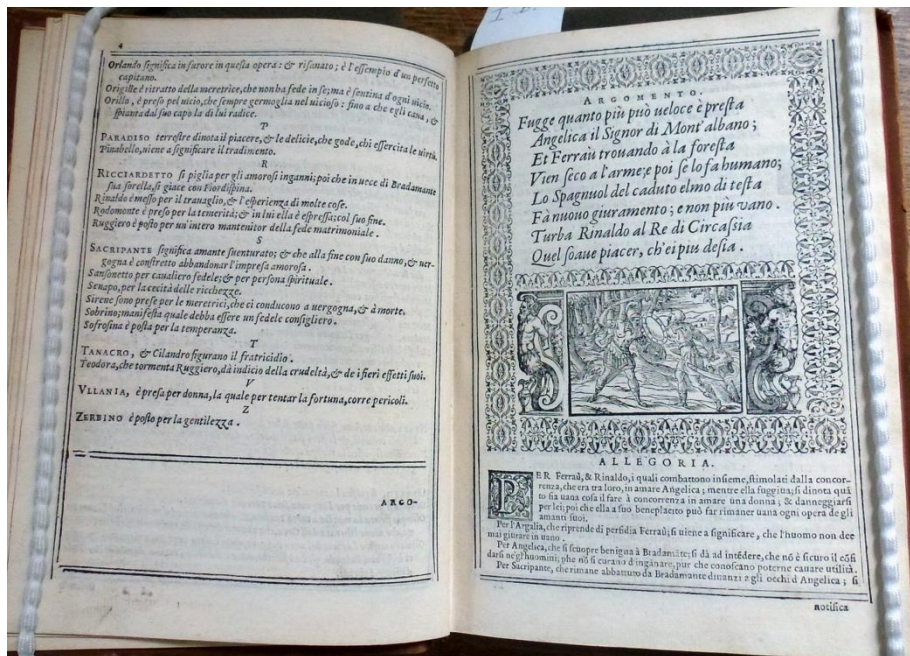 4
Orlando significa in furore in questa opera: & risanato; è l'essempio d'un perfetto
capitano.
Origille è ritratto della meretrice, che non ha fede in se; ma è sentina d'ogni uicio.
Orillo, è preso pel uicio, che sempre germoglia nel uicioso: fino a che egli cana, &
spianta dal suo capo la di lui radice.
P
PARADISO terrestre dinota il piacere, & le delicie, che gode, chi essercita le uirtù.
Pinabello, uiene a significare il tradimento.
R
RICCIARDETTO si piglia per gli amorosi inganni; poi che in uece di Bradamante
sua sorella, si giace con Fiordispina.
Rinaldo è messo per il trauaglio, & l'esperienza di molte cose.
Rodomonte è preso per la temerità; & in lui ella è espressa; col suo fine.
Ruggiero è posto per un'intero mantenitor della fede matrimoniale.
S
SACRIPANTE significa amante suenturato; & che alla fine con suo danno, & uer-
gogna è constretto abbandonar l'impresa amorosa.
Sansonetto per caualiero fedele; & per persona spirituale.
Senapo, per la cecità delle ricchezze.
Sirene sono prese per le meretrici, che ci conducono a uergogna, & à morte.
Sobrino; manifesta quale debba essere un fedele consigliero.
Sofrosina è posta per la temperanza.
T
TANACRO, & Cilandro figurano il fratricidio.
Teodora, che tormenta Ruggiero, dà indicio della crudeltà, & de i fieri effetti suoi.
V
VLLANIA, è presa per donna, la quale per tentar la fortuna, corre pericoli.
Z
ZERBINO è posto per la gentilezza.
ARGO-
ARGOMENTO.
Fugge quanto più può ueloce è presta
Angelica il Signor di Mont'albano;
Et Ferraù trouando à la foresta
Vien seco a l'arme; e poi se lo fa humano;
Lo Spagnuol del caduto elmo di testa
Fà nuouo giuramento; e non piu uano.
Turba Rinaldo al Re di Circassia
Quel soaue piacer, ch'ei piu desia.
ALLEGORIA.
PER Ferraù, & Rinaldo, i quali combattono insieme, stimolati dalla concor-
renza, che era tra loro, in amare Angelica; mentre ella fuggiua; si dinota quā
to sia uana cosa il fare à concorrenza in amare una donna; & danneggiarsi
per lei; poi che ella a suo beneplacito può far rimaner uana ogni opera de gli
amanti suoi.
Per l'Argalia, che riprende di perfidia Ferraù; si uiene a significare, che l'huomo non dee
mai giurare in uano.
Per Angelica, che si scuopre benigna à Bradamāte; si dà ad intēdere, che nō è sicuro il cōsi
darsi ne gl'huomini; phe nō si curano d'ingānare, pur che conoscano poterne cauare utilità.
Per Sacripante, che rimane abbattuto da Bradamante dinanzi a gli occhi d'Angelica; si
notifica